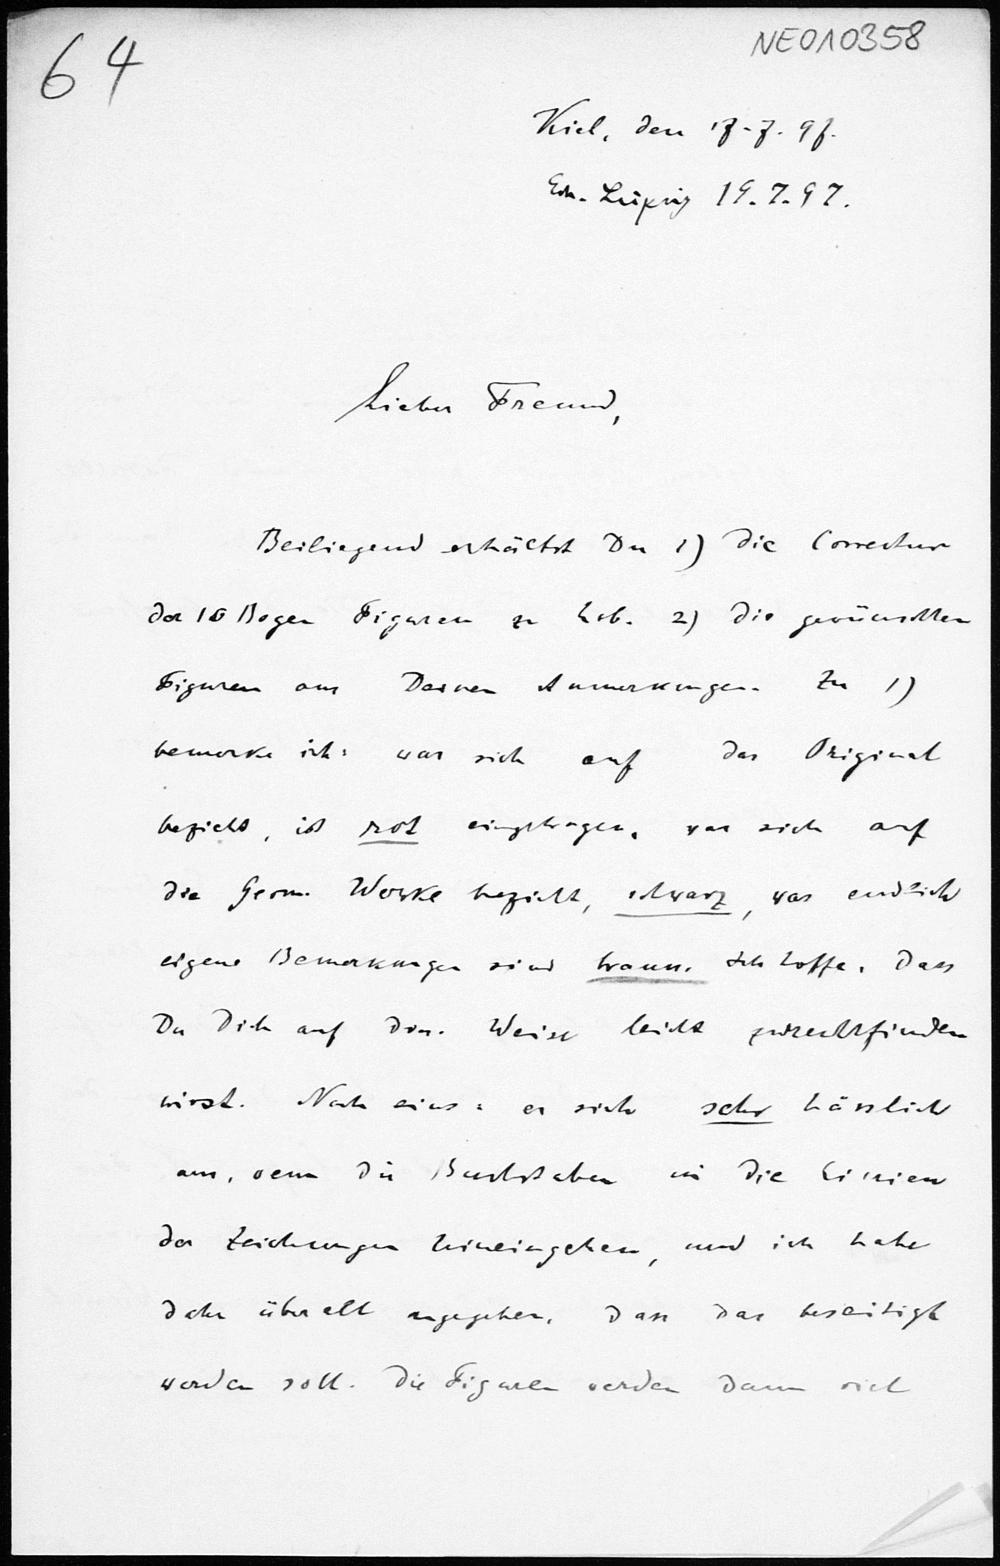 64
NE010358
Kiel, den 17.7.97.
Leipzig 19.7.97.
Lieber Freund,
Beiliegend erhältst Du 1) die Correctur
der 10 Bogen Figuren zu Lob. 2) die gewünschten
Figuren aus Deinen Anmerkungen. Zu 1)
bemerke ich: was sich auf das Original
bezieht, ist rot eingetragen, was sich auf
die Geom. Werke bezieht, schwarz, was endlich
eigene Bemerkungen sind braun. Ich hoffe, dass
Du Dich auf diese Weise leicht zurechtfinden
wirst. Noch eins: es sieht sehr hässlich
aus, wenn die Buchstaben in die Linien
der Zeichnungen hineingehen, und ich habe
daher überall angegeben, dass das beseitigt
werden soll. Die Figuren werden dann viel